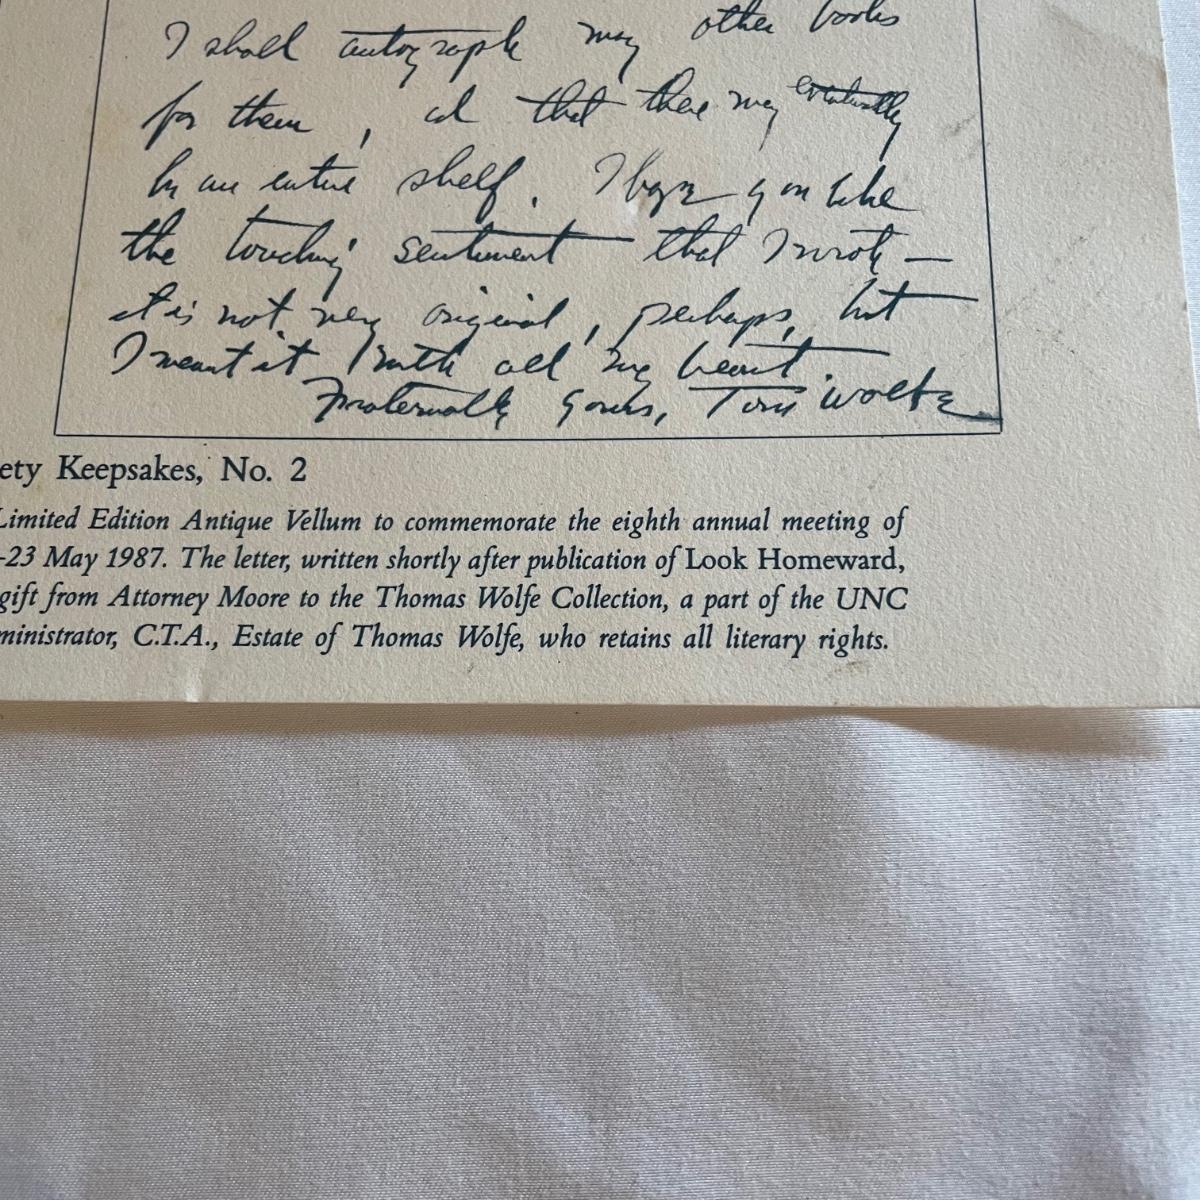 I shall autograph my other books
for them, and that there may eventually
be an entire shelf. I hope you like
the touching sentiment that I wrote —
it is not very original, perhaps, but
I meant it with all my heart.
Fraternally Yours, Tom Wolfe
ety Keepsakes, No. 2
Limited Edition Antique Vellum to commemorate the eighth annual meeting of
-23 May 1987. The letter, written shortly after publication of Look Homeward,
gift from Attorney Moore to the Thomas Wolfe Collection, a part of the UNC
ministrator, C.T.A., Estate of Thomas Wolfe, who retains all literary rights.